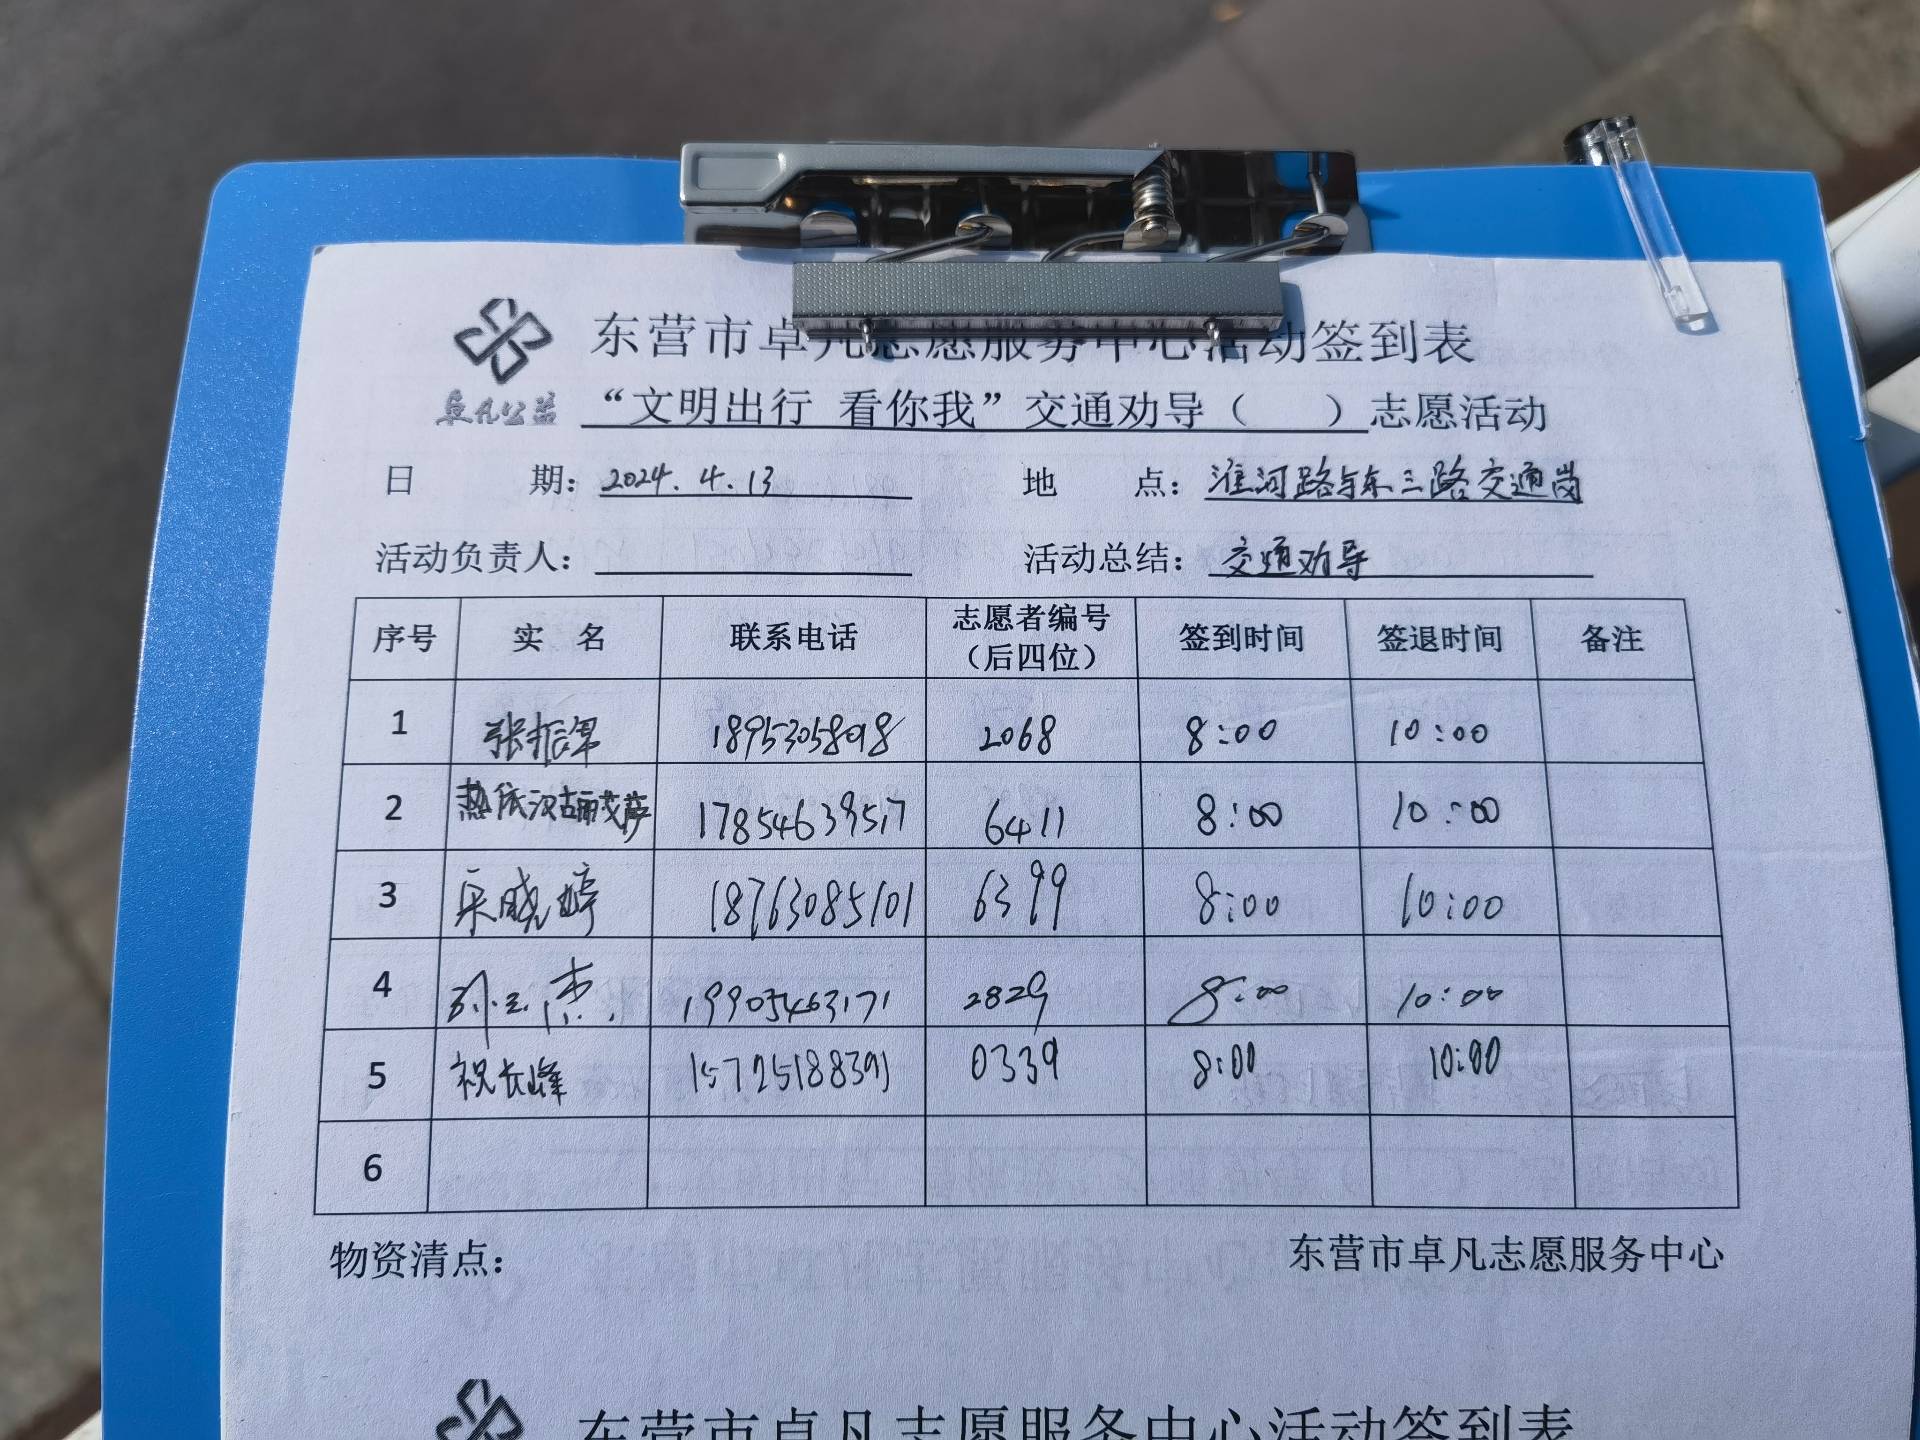 东营市卓凡志愿服务中心活动签到表
卓凡公益
“文明出行 看你我”交通劝导（ ）志愿活动
日 期：2024.4.13 地 点：淮河路与东三路交通岗
活动负责人： 活动总结：交通劝导
序号 实 名 联系电话 志愿者编号（后四位） 签到时间 签退时间 备注
1 张振军 18953058098 2068 8:00 10:00
2 热依汉古丽 17854639517 6411 8:00 10:00
3 宋晓婷 18763085101 6399 8:00 10:00
4 孙杰 19905463171 2829 8:00 10:00
5 祝长峰 15725188391 0339 8:00 10:00
6
物资清点： 东营市卓凡志愿服务中心
东营市卓凡志愿服务中心活动签到表